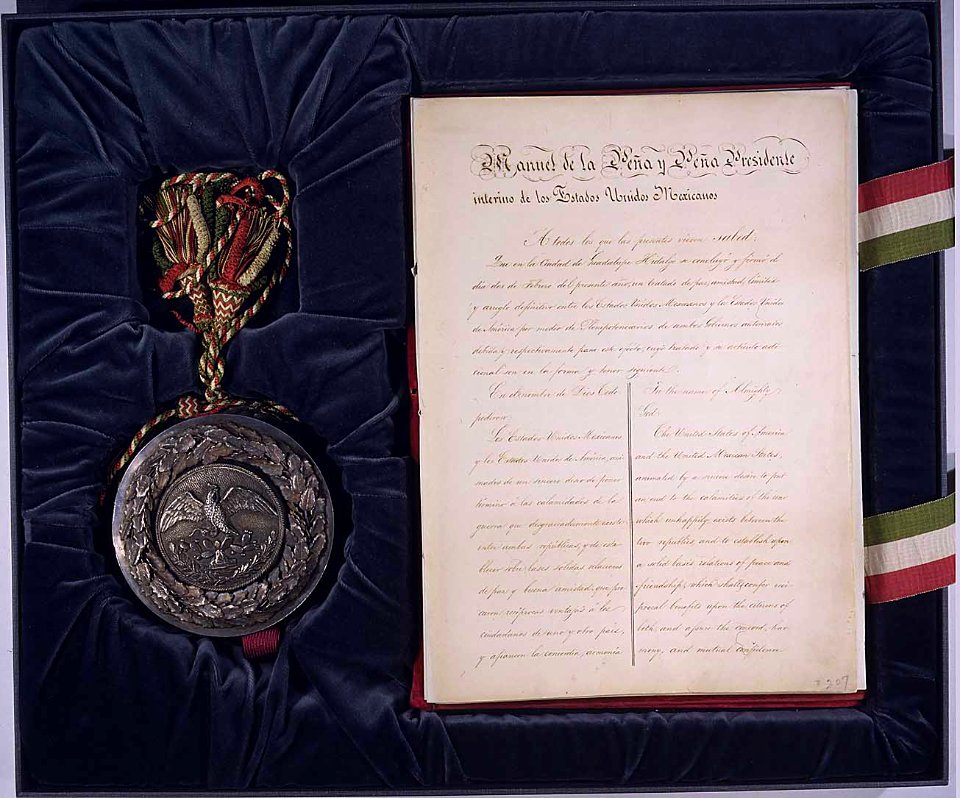 Manuel de la Peña y Peña Presidente
interino de los Estados Unidos Mexicanos
A todos los que las presentes vieren sabed:
Que en la Ciudad de Guadalupe Hidalgo se concluyó y firmó el
dia dos de Febrero del presente año, un tratado de paz, amistad, limites
y arreglo definitivo entre los Estados Unidos Mexicanos y los Estados Unidos
de América por medio de Plenipotenciarios de ambos Gobiernos autorizados
debida y respectivamente para este efecto, cuyo tratado y su articulo adi-
cional son en la forma y tenor siguiente.
En el nombre de Dios Todo-
poderoso.
Los Estados Unidos Mexicanos
y los Estados Unidos de América, ani-
mados de un sincero deseo de poner
término á las calamidades de la
guerra que desgraciadamente existe
entre ambas repúblicas, y de esta-
blecer sobre bases solidas relaciones
de paz y buena amistad, que pro-
curen reciprocas ventajas á los
ciudadanos de uno y otro pais,
y afiancen la concordia, armonia
In the name of Almighty
God.
The United States of America
and the United Mexican States,
animated by a sincere desire to put
an end to the calamities of the war
which unhappily exists between the
two republics and to establish upon
a solid basis relations of peace and
friendship, which shall confer reci-
procal benefits upon the citizens of
both, and assure the concord, har-
mony, and mutual confidence
207